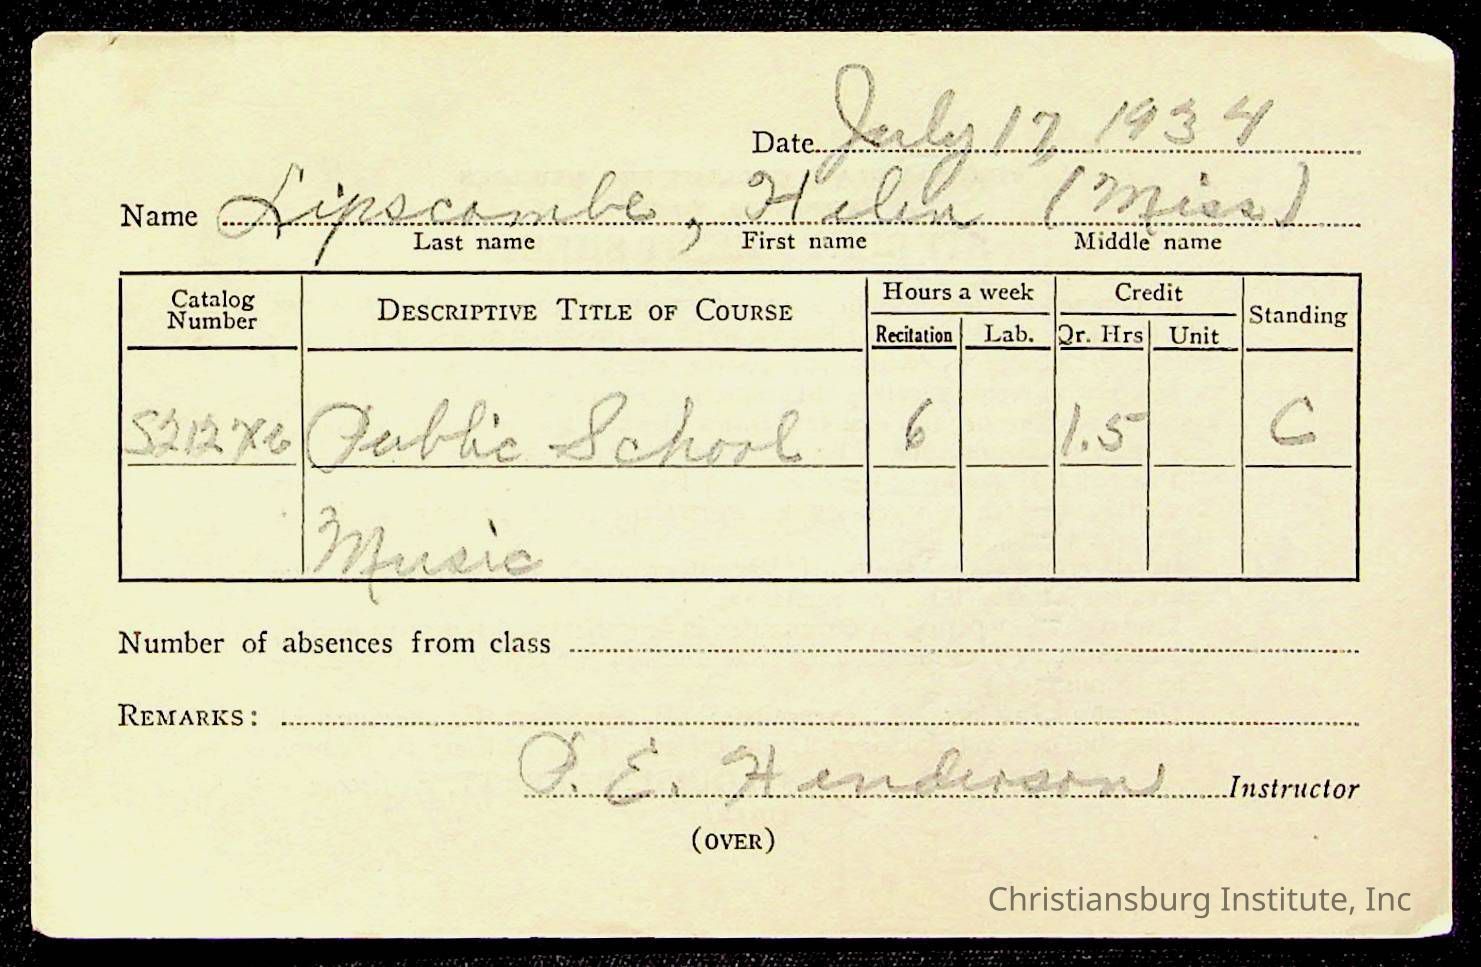 Date July 17, 1934
Name Lipscombe, Helen (Miss)
Last name First name Middle name
Catalog Number DESCRIPTIVE TITLE OF COURSE Hours a week Credit Standing
Recitation Lab. Qr. Hrs Unit
S212X6 Public School 6 1.5 C
Music
Number of absences from class
REMARKS:
P. E. Henderson Instructor
(OVER)
Christiansburg Institute, Inc